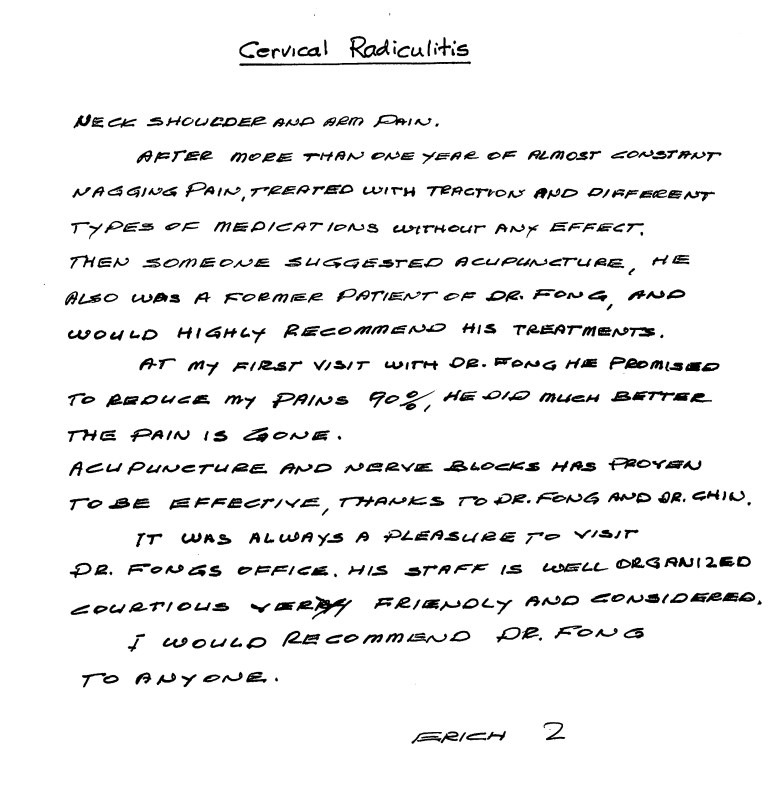 Cervical Radiculitis
NECK SHOULDER AND ARM PAIN.
AFTER MORE THAN ONE YEAR OF ALMOST CONSTANT
NAGGING PAIN, TREATED WITH TRACTION AND DIFFERENT
TYPES OF MEDICATIONS WITHOUT ANY EFFECT.
THEN SOMEONE SUGGESTED ACUPUNCTURE, HE
ALSO WAS A FORMER PATIENT OF DR. FONG, AND
WOULD HIGHLY RECOMMEND HIS TREATMENTS.
AT MY FIRST VISIT WITH DR. FONG HE PROMISED
TO REDUCE MY PAINS 90%, HE DID MUCH BETTER
THE PAIN IS GONE.
ACUPUNCTURE AND NERVE BLOCKS HAS PROVEN
TO BE EFFECTIVE, THANKS TO DR. FONG AND DR. CHIN.
IT WAS ALWAYS A PLEASURE TO VISIT
DR. FONGS OFFICE. HIS STAFF IS WELL ORGANIZED
COURTIOUS VERY FRIENDLY AND CONSIDERED.
I WOULD RECOMMEND DR. FONG
TO ANYONE.
ERICH Z